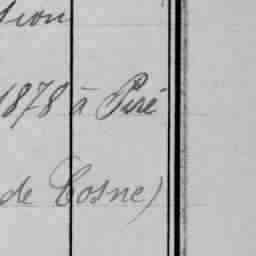 sion
1878 à Piré
de Cosne)